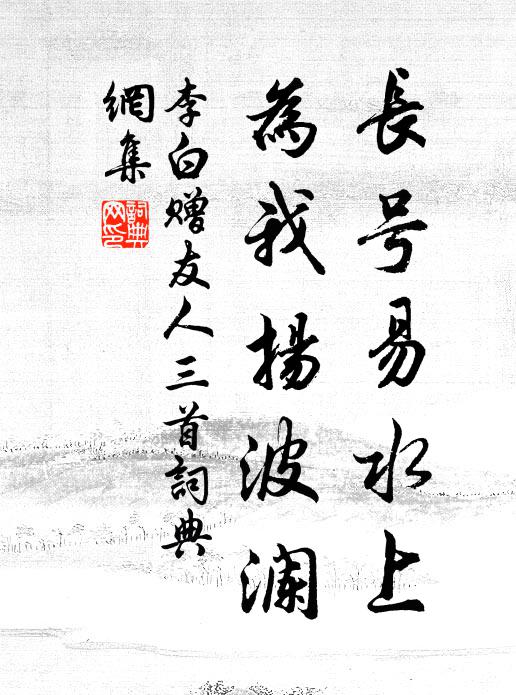 長号易水上
為我揚波澜
李白赠友人三首詞典
網集
詞典
网印